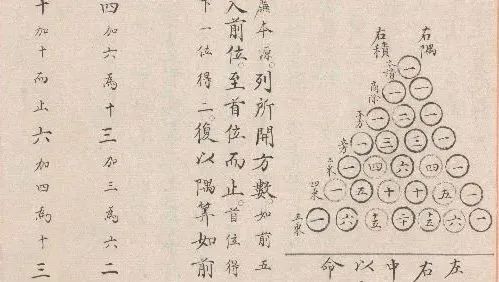 右隅
右積
本積
商除
平方
三乘
四乘
五乘
一
一 一
一 二 一
一 三 三 一
一 四 六 四 一
一 五 十 十 五 一
一 六 十五 二十 十五 六 一
左
右
中
以
命
廉本源。列所開方數。如前五
入前位。至首位而止。首位得
下一位得二。復以隅算如前
四加六為十 三加三為六 二
十加十而止 六加四為十 三